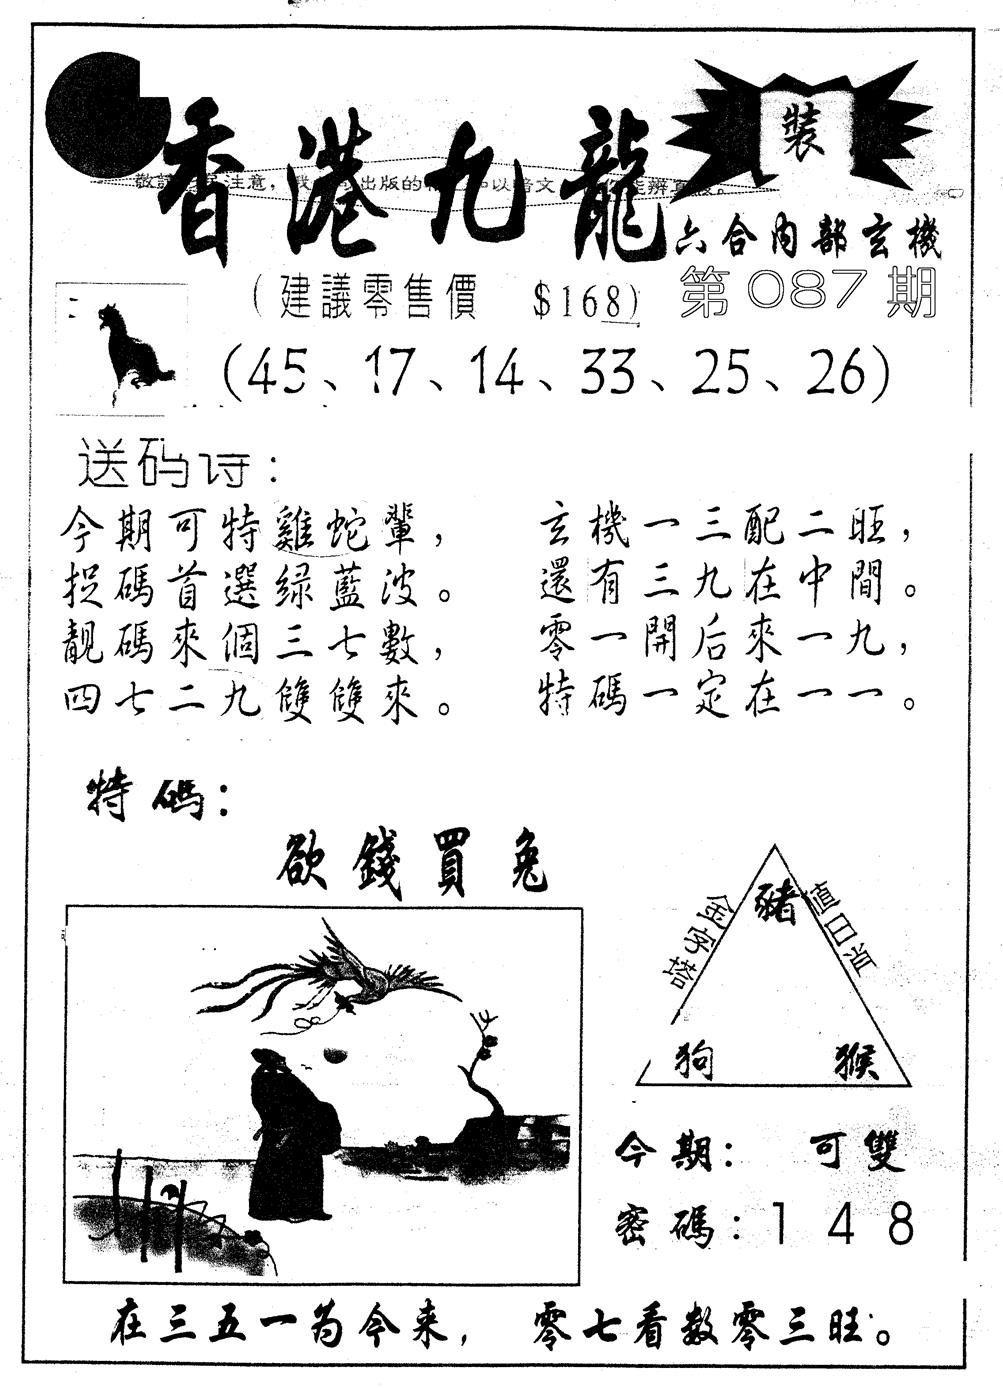 裝
香港九龍
敬請 注意, 出版的 以暗文
六合內部玄機
(建議零售價 $168)
第087期
(45、17、14、33、25、26)
送码诗:
今期可特雞蛇輩,
捉碼首選绿藍波。
靚碼來個三七數,
四七二九雙雙來。
玄機一三配二旺,
還有三九在中間。
零一開后來一九,
特碼一定在一一。
特碼:
欲錢買兔
金字塔
值日肖
豬
狗 猴
今期: 可雙
密碼:148
在三五一为今来, 零七看数零三旺。